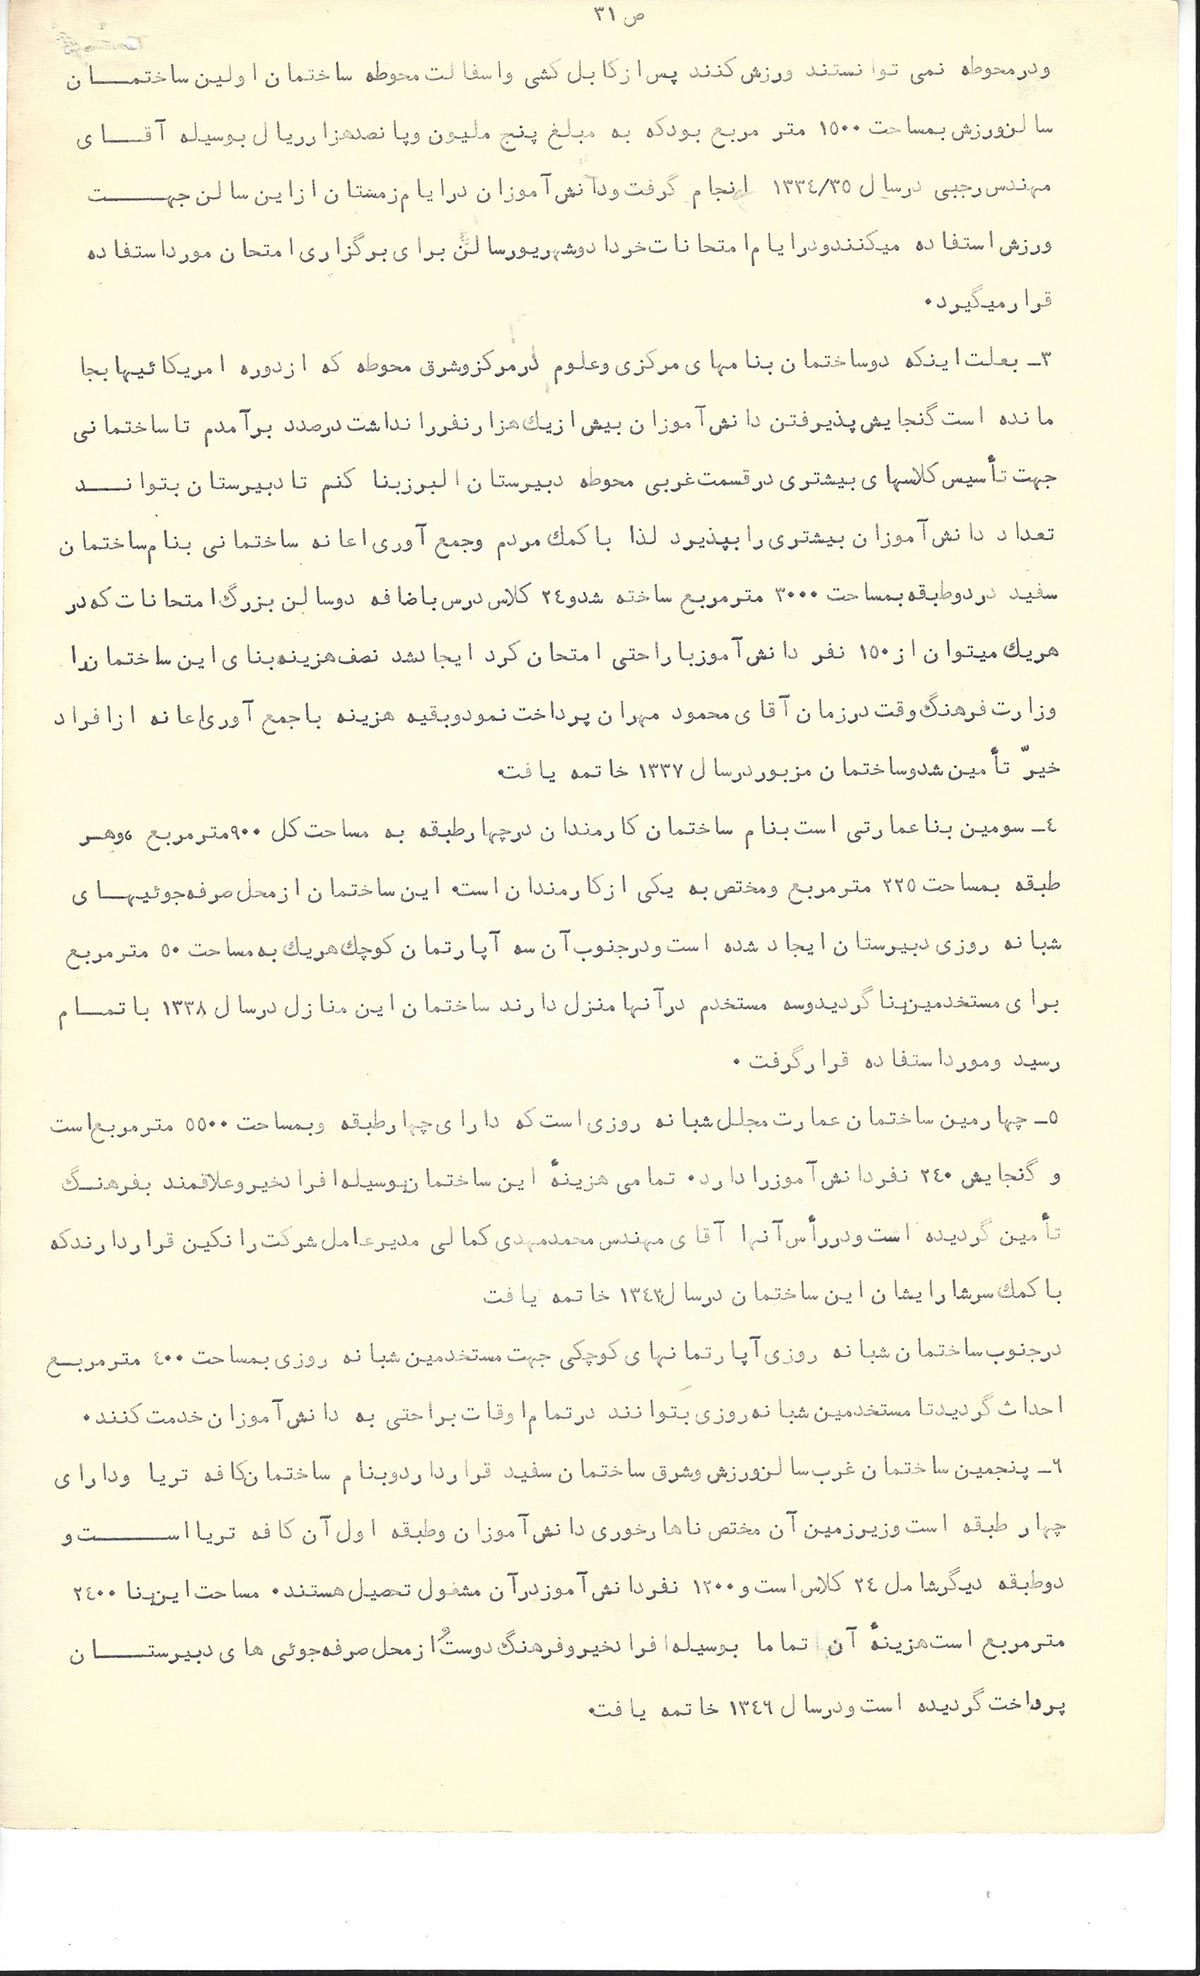 ص ۳۱
ودرمحوطه نمی توانستند ورزش کنند پس از کابل کشی واسفالت محوطه ساختمان اولین ساختمـــان
سالن ورزش بمساحت ۱۵۰۰ متر مربع بودکه به مبلغ پنج ملیون وپانصدهزار ریال بوسیله آقـــای
مهندس رجبی درسال ۱۳۳٤/۳۵ انجام گرفت ودانش آموزان درایام زمستان ازاین سالن جهـــت
ورزش استفاده میکنندودرایام امتحانات خرداد وشهریورسالن برای برگزاری امتحان مورداستفاده
قرارمیگیرد۰
۳ـ بعلت اینکه دوساختمان بنامهای مرکزی وعلوم درمرکزوشرق محوطه که ازدوره امریکائیهابجا
مانده است گنجایش پذیرفتن دانش آموزان بیش ازیك هزارنفررانداشت درصدد برآمدم تاساختمانی
جهت تأسیس کلاسهای بیشتری درقسمت غربی محوطه دبیرستان البرزبنا کنم تادبیرستان بتوانـــد
تعداد دانش آموزان بیشتری رابپذیرد لذا باکمك مردم وجمع آوری اعانه ساختمانی بنام ساختمان
سفید دردوطبقه بمساحت ۳۰۰۰ مترمربع ساخته شدو۲٤ کلاس درس باضافه دوسالن بزرگ امتحانات که در
هریك میتوان از ۱۵۰ نفر دانش آموزباراحتی امتحان کرد ایجادشد نصف هزینه بنای این ساختمان را
وزارت فرهنگ وقت درزمان آقای محمود مهران پرداخت نمودوبقیه هزینه باجمع آوری اعانه ازافراد
خیرّ تأمین شدوساختمان مزبوردرسال ۱۳۳۷ خاتمه یافت۰
٤ـ سومین بناعمارتی است بنام ساختمان کارمندان درچهارطبقه به مساحت کل ۹۰۰مترمربع ،وهـر
طبقه بمساحت ۲۲۵ مترمربع ومختص به یکی ازکارمندان است۰ این ساختمان ازمحل صرفه جوئیهـــای
شبانه روزی دبیرستان ایجاد شده است ودرجنوب آن سه آپارتمان کوچك هریك به مساحت ۵۰ مترمربع
برای مستخدمین بناگردیدوسه مستخدم درآنها منزل دارند ساختمان این منازل درسال ۱۳۳۸ باتمـــام
رسید ومورداستفاده قرارگرفت ۰
۵ـ چهارمین ساختمان عمارت مجلل شبانه روزی است که دارای چهارطبقه وبمساحت ۵۵۰۰ مترمربع است
و گنجایش ۲٤۰ نفردانش آموزرا دارد۰ تمامی هزینهٔ این ساختمان بوسیله افرادخیروعلاقمند بفرهنـگ
تأمین گردیده است ودررأس آنها آقای مهندس محمدمهدی کمالی مدیرعامل شرکت رانکین قراردارندکه
باکمك سرشارایشان این ساختمان درسال ۱۳٤۲ خاتمه یافت
درجنوب ساختمان شبانه روزی آپارتمانهای کوچکی جهت مستخدمین شبانه روزی بمساحت ٤۰۰ مترمربـع
احداث گردیدتا مستخدمین شبانه روزی بتوانند درتمام اوقات براحتی به دانش آموزان خدمت کنند۰
۶ـ پنجمین ساختمان غرب سالن ورزش وشرق ساختمان سفید قرارداردوبنام ساختمان کافه تریا ودارای
چهار طبقه است وزیرزمین آن مختص ناهارخوری دانش آموزان وطبقه اول آن کافه تریا اســـت و
دوطبقه دیگرشامل ۲٤ کلاس است و ۱۲۰۰ نفردانش آموزدرآن مشغول تحصیل هستند۰ مساحت این بنا ۲٤۰۰
مترمربع است هزینهٔ آن تماما بوسیله افرادخیروفرهنگ دوست و ازمحل صرفه جوئی های دبیرستـــان
پرداخت گردیده است ودرسال ۱۳٤۶ خاتمه یافت۰